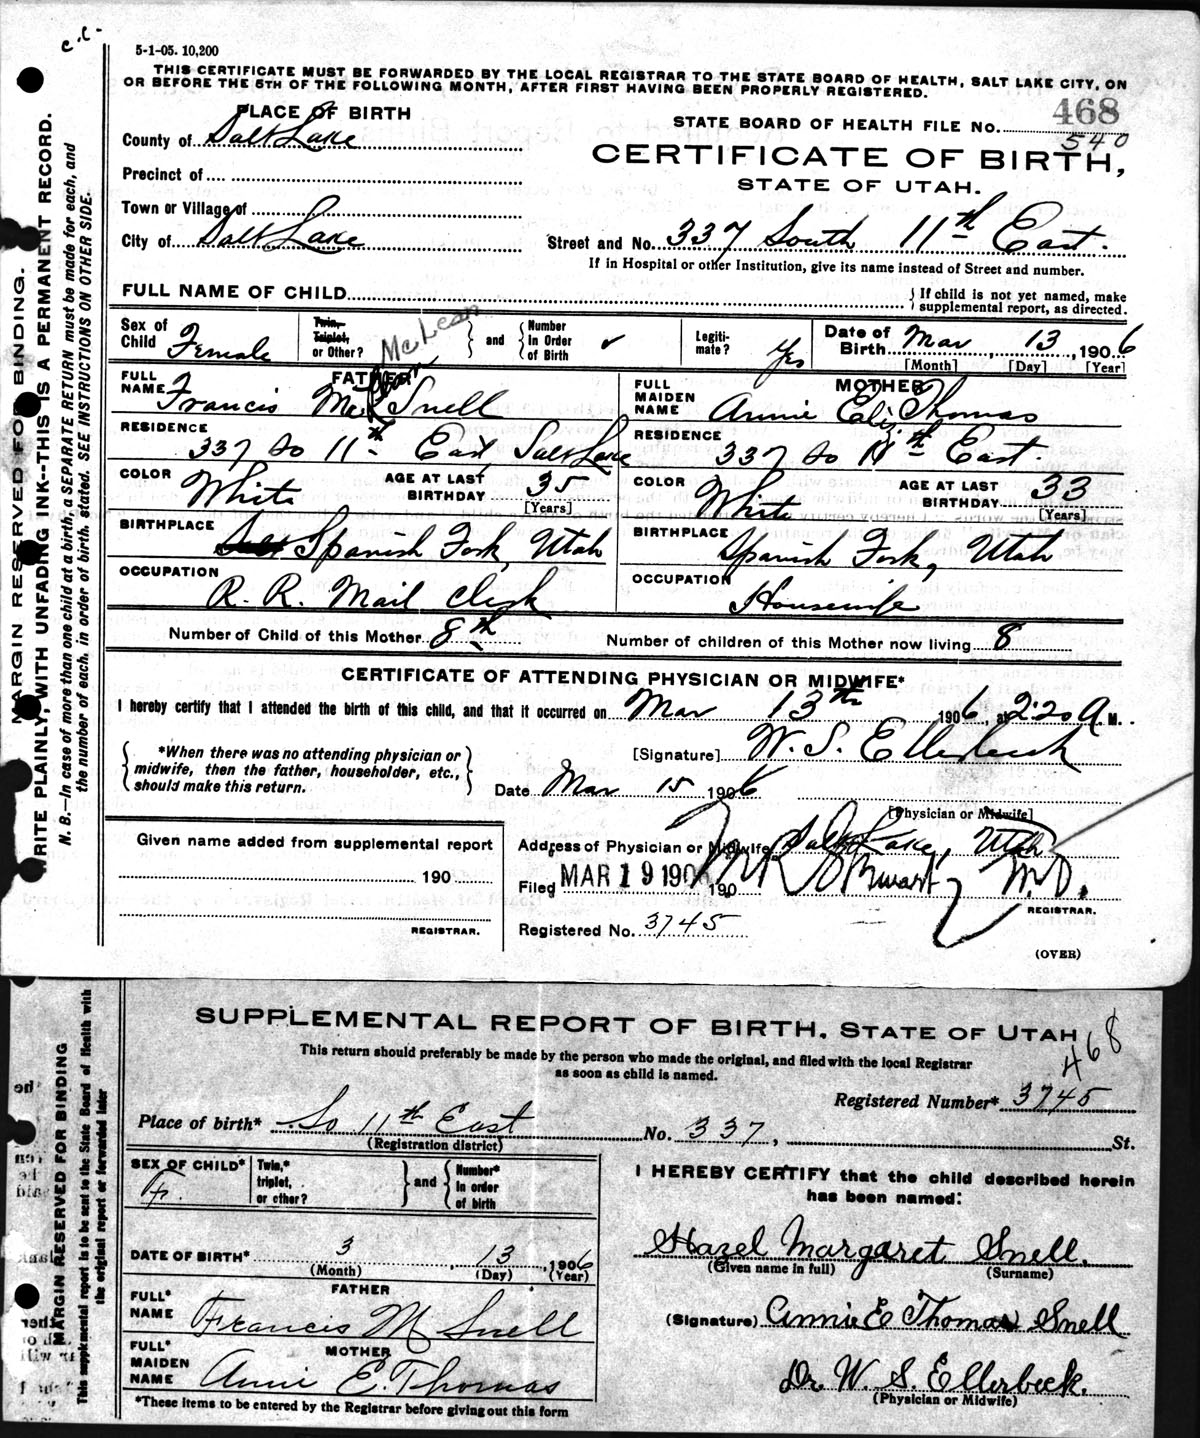 c.c.
5-1-05. 10,200
THIS CERTIFICATE MUST BE FORWARDED BY THE LOCAL REGISTRAR TO THE STATE BOARD OF HEALTH, SALT LAKE CITY, ON
OR BEFORE THE 5TH OF THE FOLLOWING MONTH, AFTER FIRST HAVING BEEN PROPERLY REGISTERED.
PLACE OF BIRTH
County of Salt Lake
Precinct of
Town or Village of
City of Salt Lake
STATE BOARD OF HEALTH FILE No. 468
540
CERTIFICATE OF BIRTH,
STATE OF UTAH.
Street and No. 337 South 11th East.
If in Hospital or other Institution, give its name instead of Street and number.
FULL NAME OF CHILD
If child is not yet named, make
supplemental report, as directed.
Sex of Child Female
Twin, Triplet, or Other?
and
Number In Order of Birth ✓
Legitimate? Yes
Date of Birth Mar 13, 1906
[Month] [Day] [Year]
McLean
FATHER
FULL NAME Francis Mc Snell
RESIDENCE 337 So 11th East Salt Lake
COLOR White
AGE AT LAST BIRTHDAY 35
[Years]
BIRTHPLACE Salt Spanish Fork, Utah
OCCUPATION R. R. Mail Clerk
MOTHER
FULL MAIDEN NAME Annie Eliz. Thomas
RESIDENCE 337 So 11th East.
COLOR White
AGE AT LAST BIRTHDAY 33
[Years]
BIRTHPLACE Spanish Fork, Utah
OCCUPATION Housewife
Number of Child of this Mother 8th
Number of children of this Mother now living 8
CERTIFICATE OF ATTENDING PHYSICIAN OR MIDWIFE*
I hereby certify that I attended the birth of this child, and that it occurred on Mar 13th 1906, at 2:20 A. M.
*When there was no attending physician or
midwife, then the father, householder, etc.,
should make this return.
[Signature] W. S. Ellerbeck
Date Mar 15 1906
[Physician or Midwife]
Given name added from supplemental report
190
REGISTRAR.
Address of Physician or Midwife Salt Lake, Utah
Filed MAR 19 1906 190 M.D.
REGISTRAR.
Registered No. 3745
(OVER)
MARGIN RESERVED FOR BINDING.
WRITE PLAINLY, WITH UNFADING INK--THIS IS A PERMANENT RECORD.
N. B.—In case of more than one child at a birth, a SEPARATE RETURN must be made for each, and
the number of each, in order of birth, stated. SEE INSTRUCTIONS ON OTHER SIDE.
SUPPLEMENTAL REPORT OF BIRTH, STATE OF UTAH
468
This return should preferably be made by the person who made the original, and filed with the local Registrar
as soon as child is named.
Registered Number* 3745
Place of birth* So 11th East No. 337, St.
(Registration district)
SEX OF CHILD* F.
Twin,* triplet, or other?
and
Number* in order of birth
DATE OF BIRTH* 3, 13, 1906
(Month) (Day) (Year)
FATHER
FULL* NAME Francis M Snell
MOTHER
FULL* MAIDEN NAME Annie E. Thomas
*These items to be entered by the Registrar before giving out this form
I HEREBY CERTIFY that the child described herein
has been named:
Hazel Margaret Snell.
(Given name in full) (Surname)
(Signature) Annie E Thomas Snell
Dr. W. S. Ellerbeck.
(Physician or Midwife)
MARGIN RESERVED FOR BINDING
This supplemental report is to be sent to the State Board of Health with
the original report or forwarded later